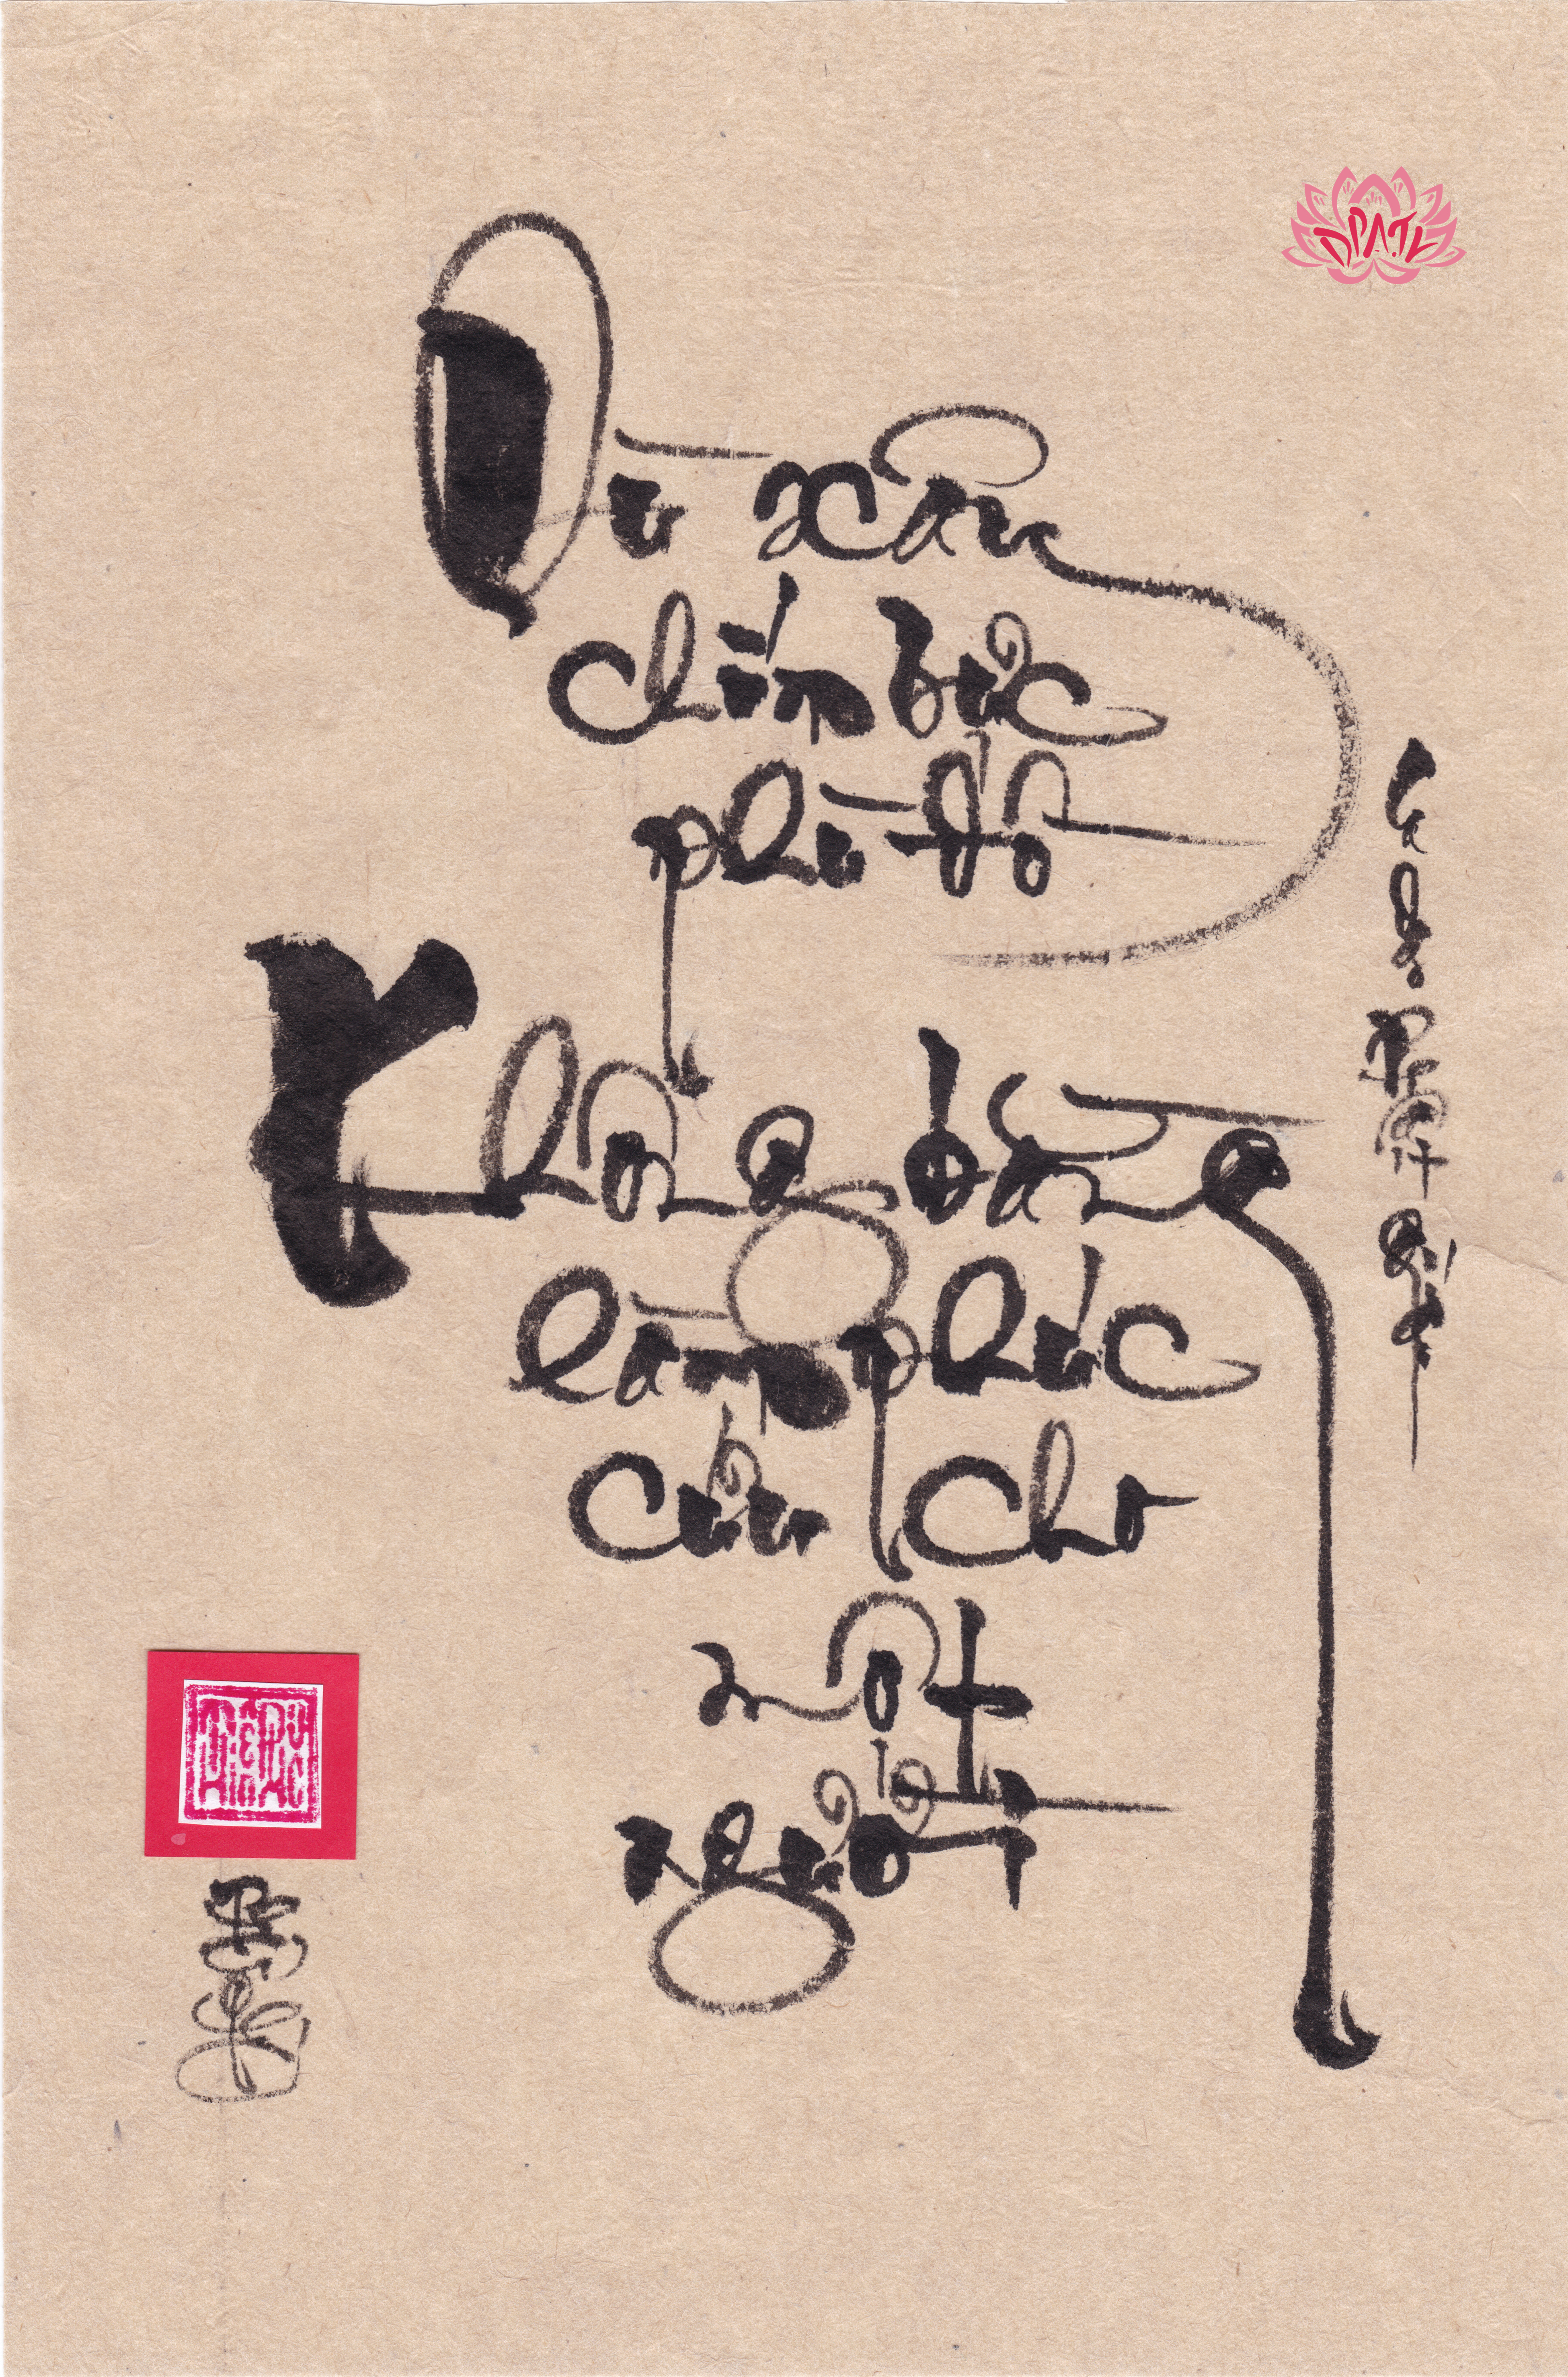 Dù xây
chín bực
phù đồ
Không bằng
làm phúc
cứu cho
một
người
DPATL